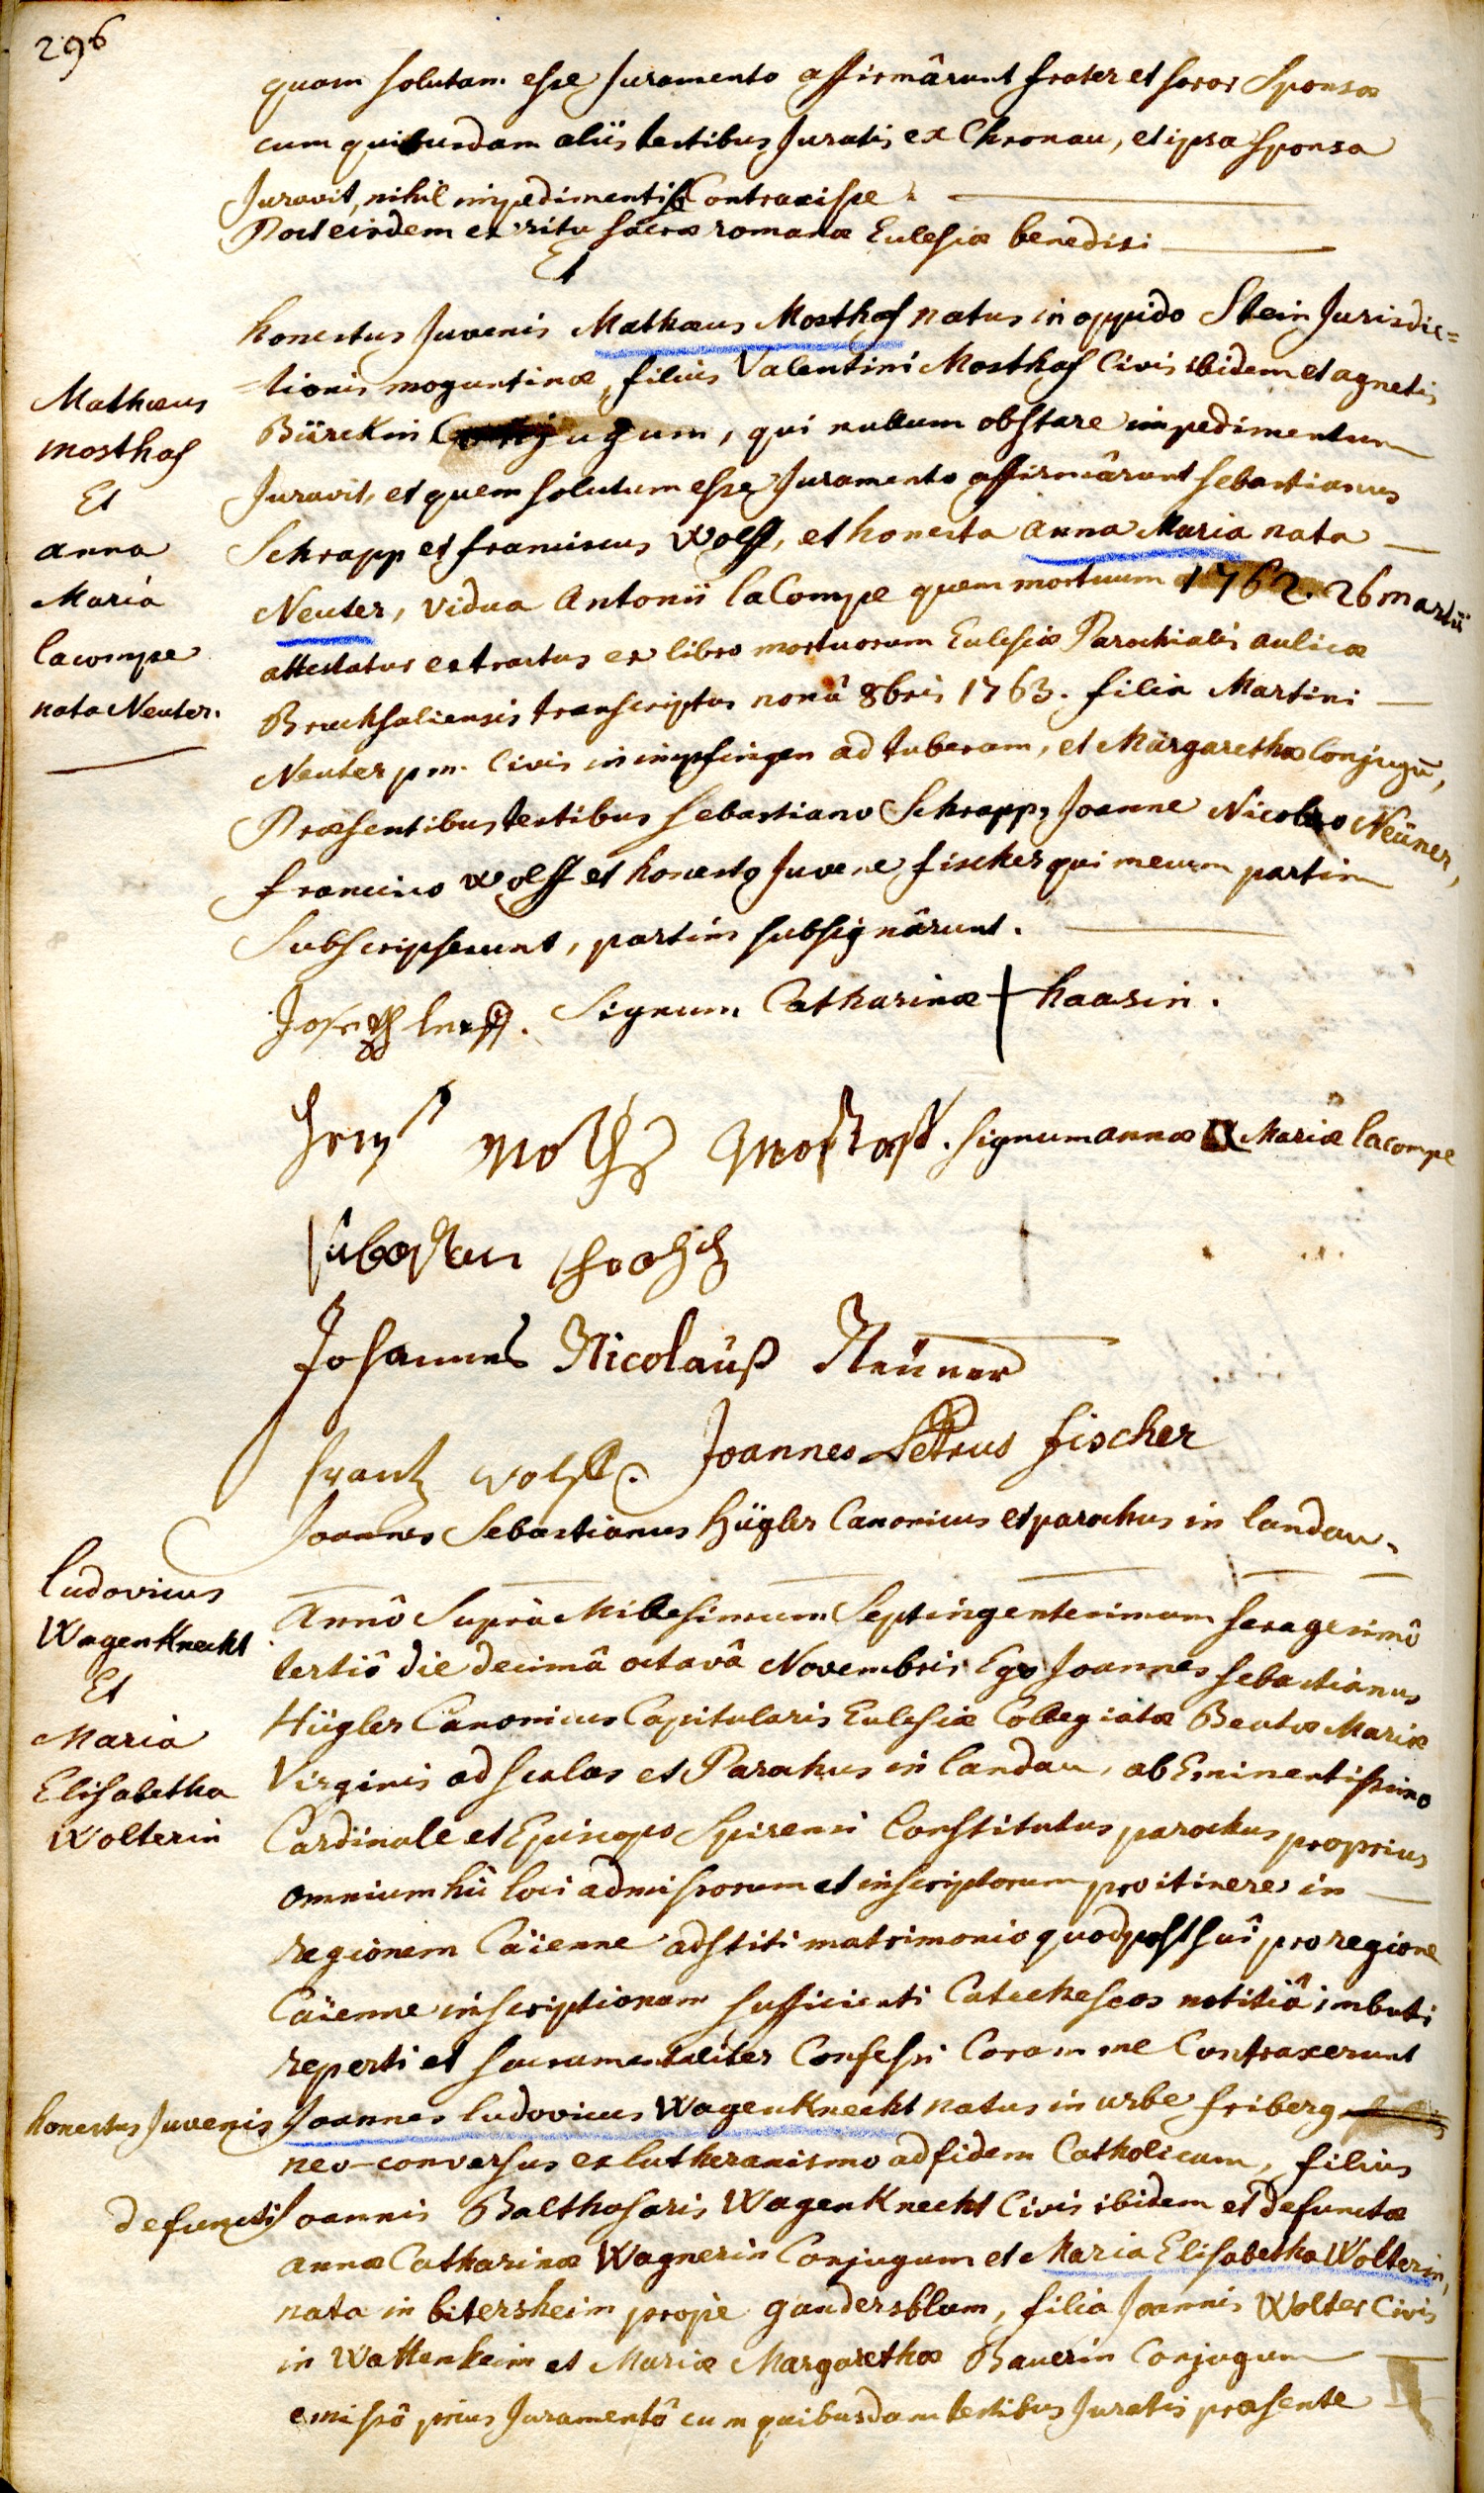 296
quam solutam esse Juramento affirmârunt frater et soror Sponsæ
cum quibusdam aliis testibus Juratis ex Chronau, et ipsa sponsa
Juravit, nihil impedimenti se Contraxisse.
Post eisdem ex ritu sacræ romanæ Eclesiæ benedixi
Et
honestus Juvenis Mathæus Mosthaf natus in oppido Stein Jurisdic=
=tionis moguntinæ, filius Valentini Mosthaf Civis ibidem et agnetis
Bürckin Conjugum, qui nullum obstare impedimentum
Juravit, et quem solutum esse Juramento affirmârunt sebastianus
Schrapp et franciscus Wolff, et honesta anna Maria nata
Neuter, vidua Antonii laCompe quem mortuum 1762. 26 martii
attestatur extractus ex libro mortuorum Eclesiæ Parochialis aulicæ
Bruchsaliensis transcriptus nonâ 8bris 1763. filia Martini
Neuter p.m. Civis in impfingen ad tuberam, et Margarethæ Conjugū,
Præsentibus testibus sebastiano Schrapp, Joanne Nicolao Neüner,
francisco Wolff et honesto Juvene fischer qui mecum partim
Subscripserunt, partim subsignârunt.
Mathæus
Mosthaf
Et
anna
Maria
lacompe
nata Neuter.
Signum Catharinæ + haasin.
signum annæ X Mariæ lacompe
Johannes Nicolauß Neüner
frantz wolff. Joannes Petrus fischer
Joannes Sebastianus Hügler Canonicus et parochus in landau.
ludovicus
WagenKnecht
Et
Maria
Elisabetha
Wolterin
Annô Suprà Millesimum Septingentesimum sexagesimô
tertiô die decimâ octavâ Novembris Ego Joannes sebastianus
Hügler Canonicus Capitularis Eclesiæ Collegiatæ Beatæ Mariæ
Virginis ad scalas et Parochus in landau, ab Eminentissimo
Cardinale et Episcopo Spirensi Constitutus parochus proprius
omnium hìc loci admissorum et inscriptorum pro itinere in
regionem Caïenne adstiti matrimonio quod post suî pro regione
Caïenne inscriptionem sufficienti Catecheseos notitiâ imbuti
reperti et sacramentaliter Confessi Coram me Contraxerunt
honestus Juvenis Joannes ludovicus WagenKnecht natus in urbe friberg
neo-conversus ex lutheranismo ad fidem Catholicam, filius
defuncti Joannis Balthasaris WagenKnecht Civis ibidem et defunctæ
annæ Catharinæ Wagnerin Conjugum et Maria Elisabetha Wolterin,
nata in bitersheim propè gandersblum, filia Joannis Wolter Civis
in Wattenheim et Mariæ Margarethæ Bauerin Conjugum
emissô priùs Juramentô cum quibusdam testibus Juratis præsente